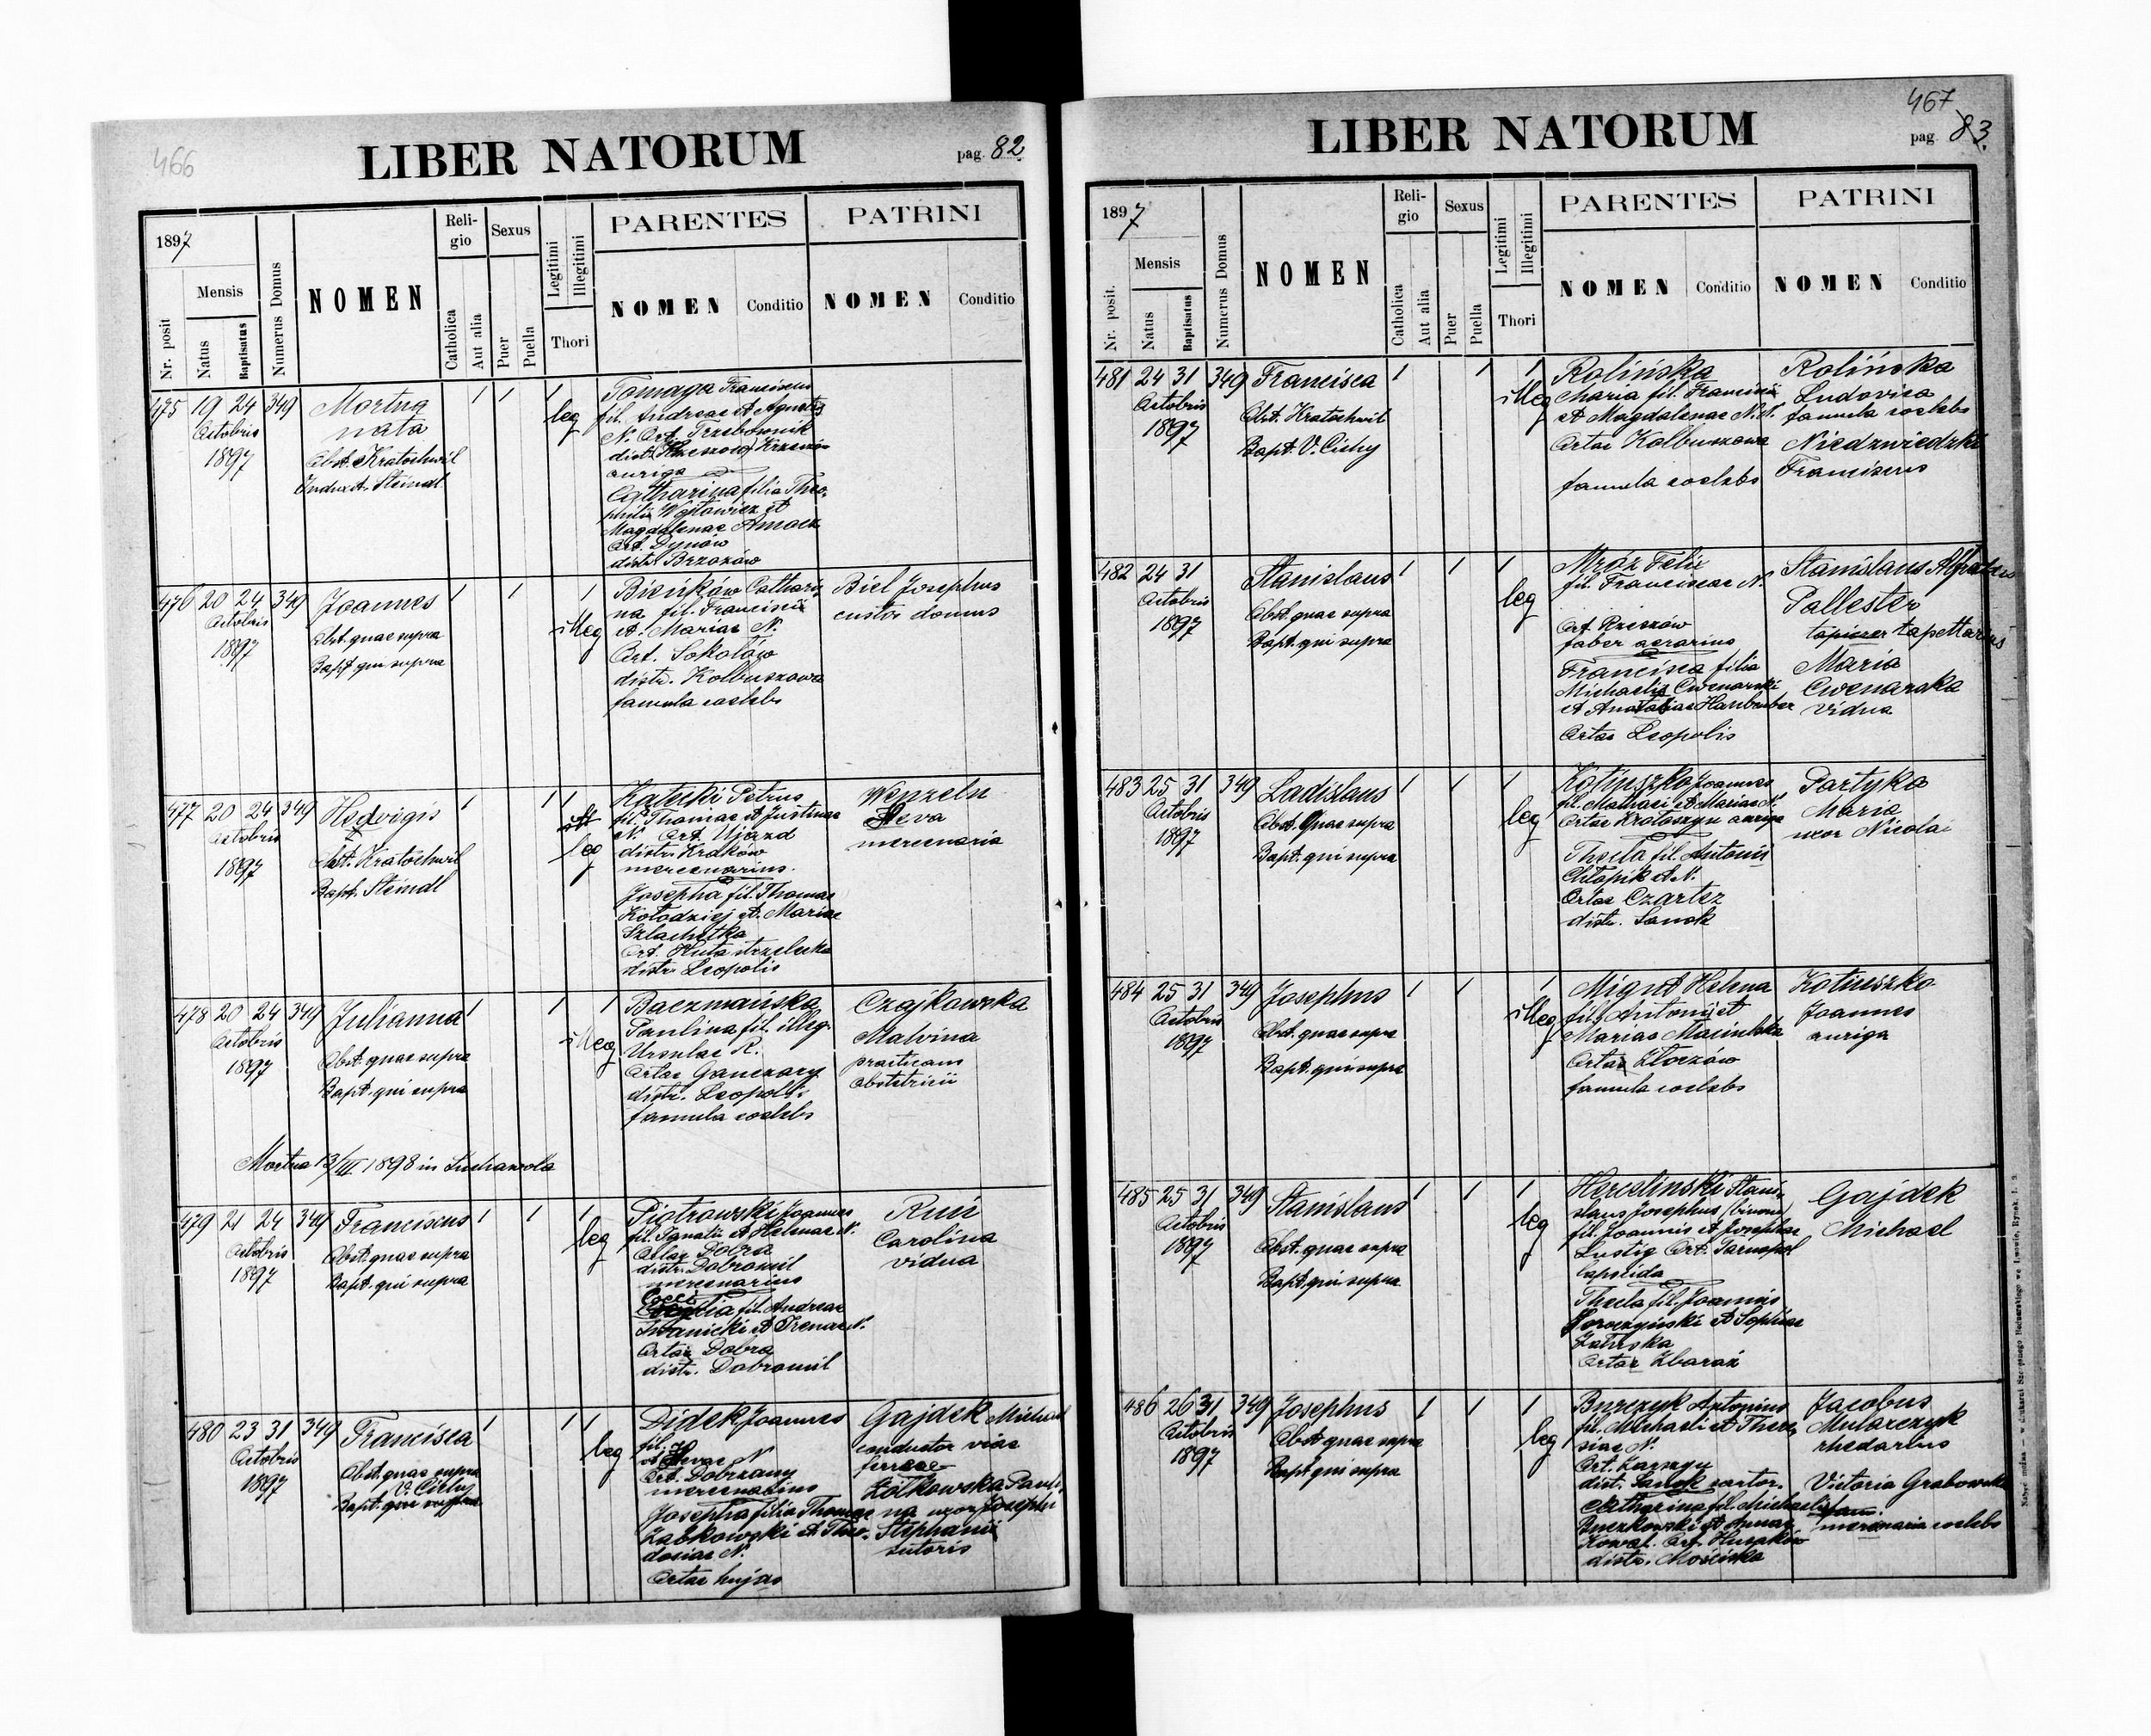 466
LIBER NATORUM
pag. 82
1897
Nr. posit
Mensis
Natus
Baptisatus
Numerus Domus
NOMEN
Reli-
gio
Catholica
Aut alia
Sexus
Puer
Puella
Legitimi
Illegitimi
Thori
PARENTES
NOMEN
Conditio
PATRINI
NOMEN
Conditio
475 19 24 349
Octobris
1897
Mortua
nata
Obst. Kratochwil
Steindl
leg
Tomaga Franciscus
fil. Andreae et Agnetis
N. Ort. Trzebownik
distr.
auriga
Catharina filia Theo-
phili Wojtowicz et
Magdalenae
Ort. Dynów
distr. Brzozów
476 20 24 349
Octobris
1897
Joannes
Obst. quae supra
Bapt. qui supra
illeg
Bieńków Cathari-
na fil. Francisci
et Mariae N.
Ort. Sokołów
distr. Kolbuszowa
famula coelebs
Biel Josephus
custos domus
477 20 24 349
Octobris
1897
Hedvigis
Obst. Kratochwil
Bapt. Steindl
leg
Petrus
fil. Thomae et Justinae
N. Ort. Ujazd
distr. Kraków
mercenarius.
Josepha fil. Thomae
Kołodziej et Mariae
Szlachetka
Ort. Huta strzelecka
distr. Leopolis
Wenzeln
Eva
mercenaria
478 20 24 349
Octobris
1897
Julianna
Obst. quae supra
Bapt. qui supra
illeg
Baczmańska
Paulina fil. illeg.
Ursulae R.
Ortae Ganczary
distr. Leopolis
famula coelebs
Czajkowska
Malvina
practicans
obstetricii
Mortua 13/III 1898 in Suchawola
479 21 24 349
Octobris
1897
Franciscus
Obst. quae supra
Bapt. qui supra
leg
Piotrowski Joannes
fil. Ignatii et Helenae N.
Ortae Dobra
distr. Dobromil
mercenarius
fil. Andreae
Iwanicki et Irenae N.
Ortae Dobra
distr. Dobromil
Ruń
Carolina
vidua
480 23 31 349
Octobris
1897
Francisca
Obst. quae supra
V. Cichy
Bapt. qui supra
leg
Didek Joannes
fil.
et Evae N
Ort. Dobrzany
mercenarius
Josepha filia Thomae
Żabkowski et Theo-
dosiae N.
Ortae hujas
Gajdek Michael
conductor viae
ferreae
Żółkowska Pauli-
na uxor Josephi
Stephanii
sutoris
467
LIBER NATORUM
pag. 83.
1897
Nr. posit.
Mensis
Natus
Baptisatus
Numerus Domus
NOMEN
Reli-
gio
Catholica
Aut alia
Sexus
Puer
Puella
Legitimi
Illegitimi
Thori
PARENTES
NOMEN
Conditio
PATRINI
NOMEN
Conditio
481 24 31 349
Octobris
1897
Francisca
Obst. Kratochwil
Bapt. V. Cichy
illeg
Rolińska
Maria fil. Francisci
et Magdalenae N.
Ortae Kolbuszowa
famula coelebs
Rolińska
Ludovica
famula coelebs
Niedzwiedzki
Franciscus
482 24 31
Octobris
1897
Stanislaus
Obst. quae supra
Bapt. qui supra
leg
Mróz Felix
fil. Franciscae N.
Ort. Rzeszów
faber aerarius
Francisca filia
Michaelis Cwenarski
et Anataliae
Ortae Leopolis
Stanislaus
Pallester
tapettarius
Maria
Cwenarska
vidua
483 25 31 349
Octobris
1897
Ladislaus
Obst. quae supra
Bapt. qui supra
leg
Kotiuszko Joannes
fil. Mathaei et Mariae N.
Ortae Kratoszyn auriga
Thecla fil. Antonii
Chłopik et N.
Ortae Czartez
distr. Sanok
Partyka
Maria
uxor Nicolai
484 25 31 349
Octobris
1897
Josephus
Obst. quae supra
Bapt. qui supra
illeg
Migut Helena
fil. Antonii et
Mariae
Ortae Złoczów
famula coelebs
Kotiuszko
Joannes
auriga
485 25 31 349
Octobris
1897
Stanislaus
Obst. quae supra
Bapt. qui supra
leg
Hercelinski Stani-
slaus Josephus
fil. Joannis et Josephae
Lustig Ort. Tarnopol
lapicida
Thecla fil. Joannis
et Sophiae
Załuska
Ortae Zbaraż
Gajdek
Michael
486 26 31 349
Octobris
1897
Josephus
Obst quae supra
Bapt qui supra
leg
Burczyk Antonius
fil. Michaeli et There-
siae N.
Ort. Zarszyn
dist. Sanok sartor.
Catharina fil. Michaelis
Buczkowski et Annae
Kowal. Ort. Hussaków
distr. Mościska
Jacobus
Mularczyk
rhedarius
Victoria Grabowska
mercenaria coelebs